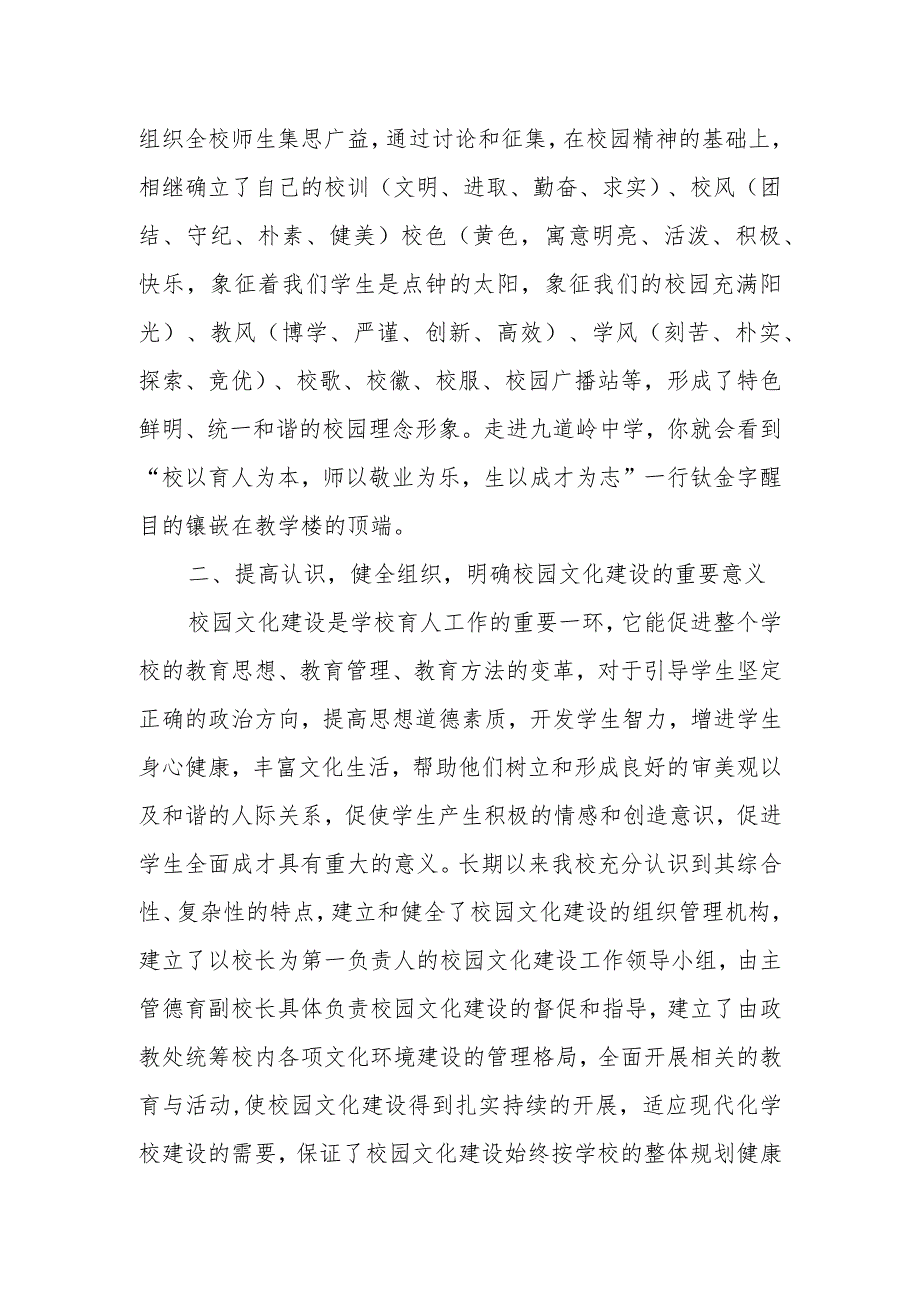 组织全校师生集思广益，通过讨论和征集，在校园精神的基础上，
相继确立了自己的校训（文明、进取、勤奋、求实）、校风（团
结、守纪、朴素、健美）校色（黄色，寓意明亮、活泼、积极、
快乐，象征着我们学生是点钟的太阳，象征我们的校园充满阳
光）、教风（博学、严谨、创新、高效）、学风（刻苦、朴实、
探索、竞优）、校歌、校徽、校服、校园广播站等，形成了特色
鲜明、统一和谐的校园理念形象。走进九道岭中学，你就会看到
“校以育人为本，师以敬业为乐，生以成才为志”一行钛金字醒
目的镶嵌在教学楼的顶端。
二、提高认识，健全组织，明确校园文化建设的重要意义
校园文化建设是学校育人工作的重要一环，它能促进整个学
校的教育思想、教育管理、教育方法的变革，对于引导学生坚定
正确的政治方向，提高思想道德素质，开发学生智力，增进学生
身心健康，丰富文化生活，帮助他们树立和形成良好的审美观以
及和谐的人际关系，促使学生产生积极的情感和创造意识，促进
学生全面成才具有重大的意义。长期以来我校充分认识到其综合
性、复杂性的特点，建立和健全了校园文化建设的组织管理机构，
建立了以校长为第一负责人的校园文化建设工作领导小组，由主
管德育副校长具体负责校园文化建设的督促和指导，建立了由政
教处统筹校内各项文化环境建设的管理格局，全面开展相关的教
育与活动,使校园文化建设得到扎实持续的开展，适应现代化学
校建设的需要，保证了校园文化建设始终按学校的整体规划健康